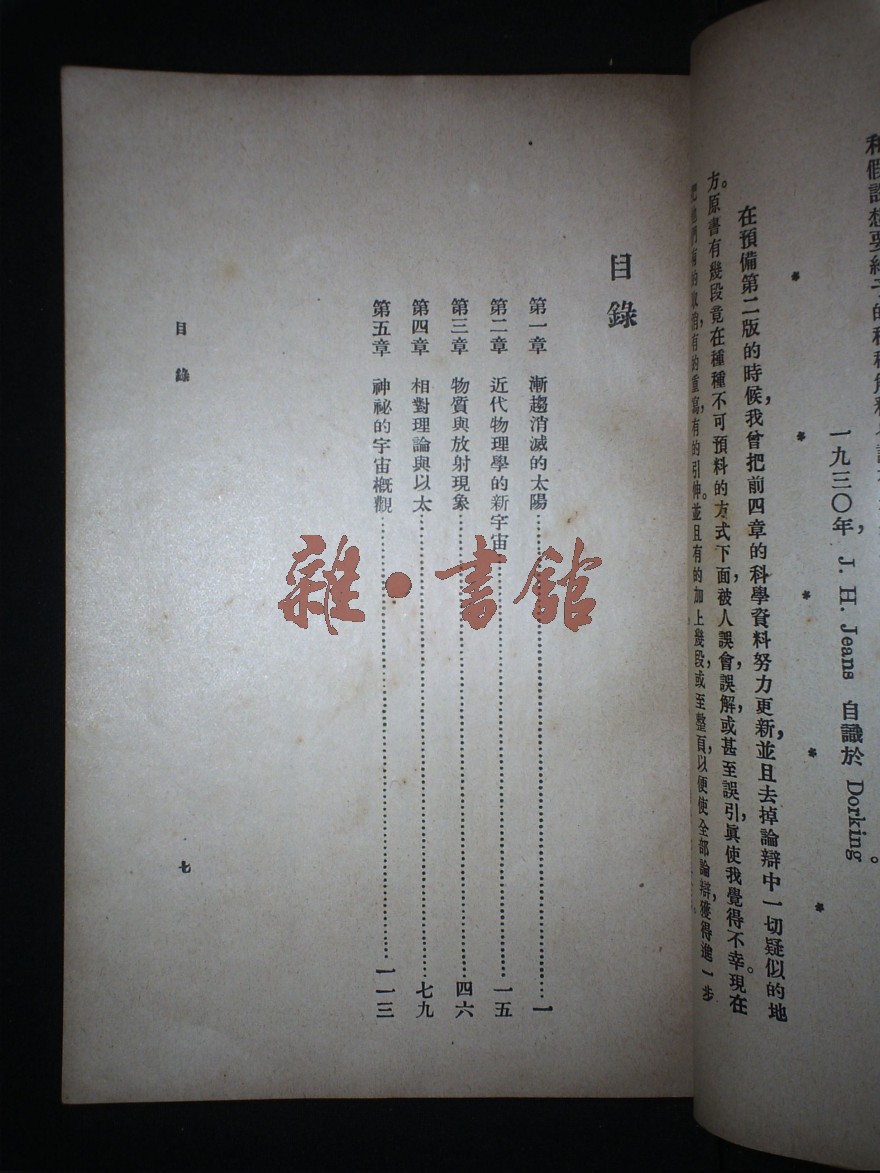 一九三〇年， J. H. Jeans 自識於 Dorking。
* * * * *
在預備第二版的時候，我曾把前四章的科學資料努力更新，並且去掉論辯中一切疑似的地
方。原書有幾段竟在種種不可預料的方式下面，被人誤會，誤解，或甚至誤引，眞使我覺得不幸。現在
有的重寫，有的引伸。並且有的加上幾段，或至整頁，以便使全部論辯，獲得進一步
目錄
第一章 漸趨消滅的太陽……一
第二章 近代物理學的新宇宙……一五
第三章 物質與放射現象……四六
第四章 相對理論與以太……七九
第五章 神祕的宇宙概觀……一一三
目錄
七
雜·書館